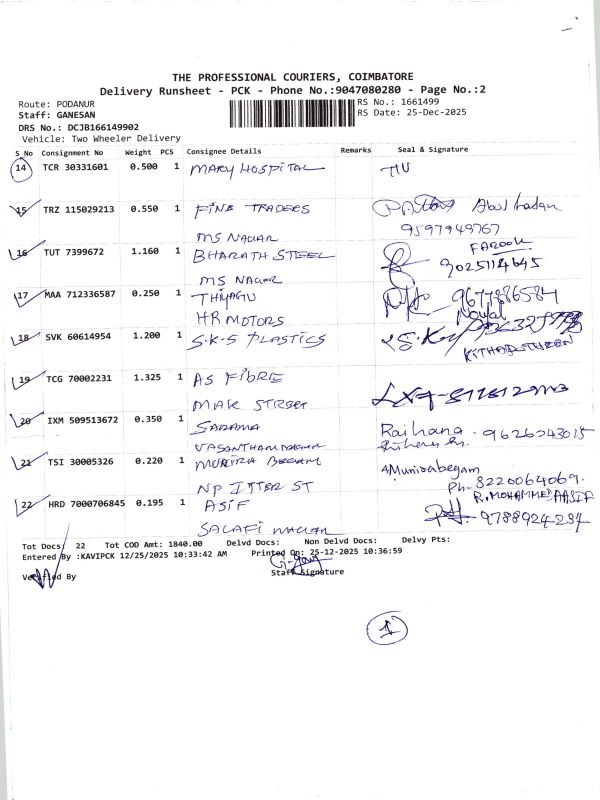 THE PROFESSIONAL COURIERS, COIMBATORE
Delivery Runsheet - PCK - Phone No.:9047080280 - Page No.:2
Route: PODANUR
RS No.: 1661499
Staff: GANESAN
RS Date: 25-Dec-2025
DRS No.: DCJB166149902
Vehicle: Two Wheeler Delivery
S No Consignment No Weight PCS Consignee Details Remarks Seal & Signature
14 TCR 30331601 0.500 1 MARY HOSPITAL
15 TRZ 115029213 0.550 1 FINE TRADERS Abul hadan
9597949767
MS NAGAR
16 TUT 7399672 1.160 1 BHARATH STEEL FAROOK
9025114645
MS NAGAR
17 MAA 712336587 0.250 1 THIYAGU 9677886584
HR MOTORS
18 SVK 60614954 1.200 1 S.K.S PLASTICS
19 TCG 70002231 1.325 1 AS FIBRE
MAK STREET
20 IXM 509513672 0.350 1 SARAMA Raihana. 9626043015
21 TSI 30005326 0.220 1 MUNIRA BEGAM Munirabegam
Ph- 8220064069.
NP ITTER ST
R.MOHAMMED AASIF
22 HRD 7000706845 0.195 1 ASIF 9788924234
SALAFI NAGAR
Tot Docs: 22 Tot COD Amt: 1840.00 Delvd Docs: Non Delvd Docs: Delvy Pts:
Entered By :KAVIPCK 12/25/2025 10:33:42 AM Printed On: 25-12-2025 10:36:59
Verified By Staff Signature
1